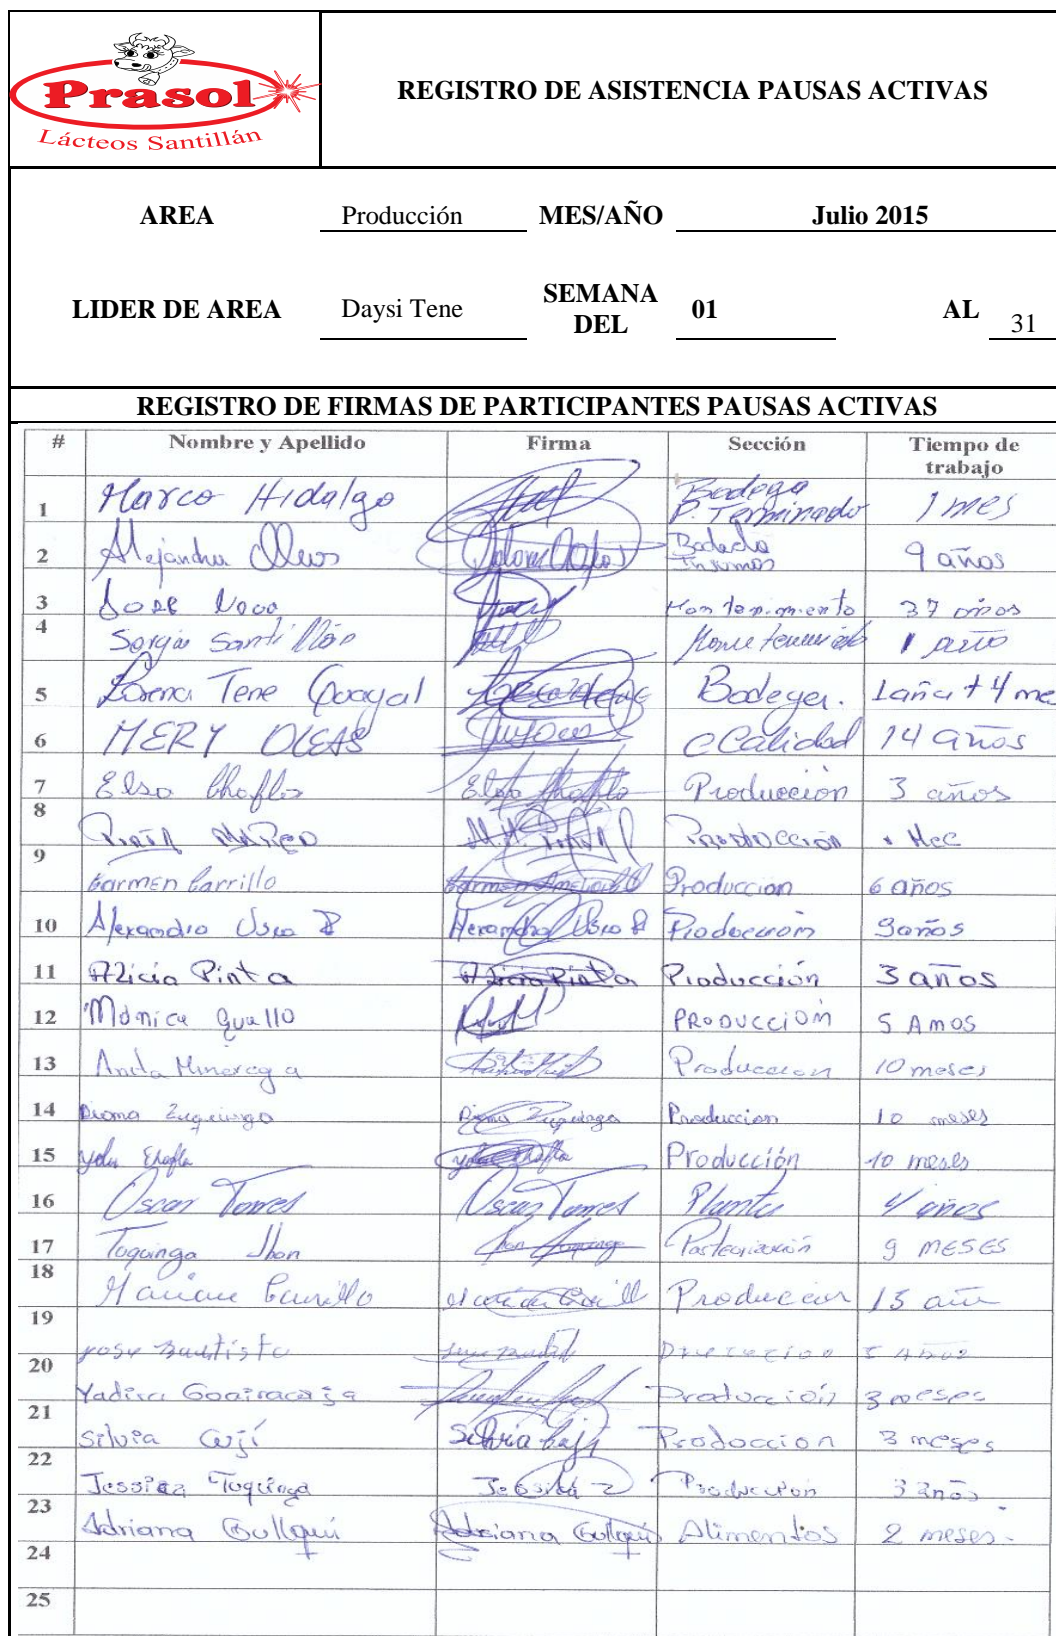 Prasol
Lácteos Santillán
REGISTRO DE ASISTENCIA PAUSAS ACTIVAS
AREA Producción MES/AÑO Julio 2015
LIDER DE AREA Daysi Tene SEMANA DEL 01 AL 31
REGISTRO DE FIRMAS DE PARTICIPANTES PAUSAS ACTIVAS
# Nombre y Apellido Firma Sección Tiempo de trabajo
1 Marco Hidalgo Bodega P. Terminado 1 mes
2 Alejandra Bodega Insumos 9 años
3 José Mantenimiento 37 años
4 Sergio Santillán 1 año
5 Lorena Tene Guayal Bodega. 1 año + 4 me
6 MERY OLEAS Calidad 14 años
7 Elsa Chafla Elsa Chafla Producción 3 años
8 MARCO PRODUCCIÓN
9 Carmen Carrillo Produccion 6 años
10 Alexandra Usca Alexandra Usca Producción 9 años
11 Alicia Pinta Alicia Pinta Producción 3 años
12 Mónica Guallo PRODUCCIÓN 5 Años
13 Produccion 10 meses
14 Diana Produccion 10 meses
15 Chafla Producción 10 meses
16 Oscar Torres Oscar Torres Planta 4 años
17 Toquinga Jhon Pasteurización 9 MESES
18 Carrillo Produccion 15 año
19 Bautista
20 Yadira Producción 3 meses
21 Silvia Cují Silvia Cují Produccion 3 meses
22 Jessica Toquinga Producción 3 años
23 Adriana Gullqui Adriana Gullqui Alimentos 2 meses.
24
25